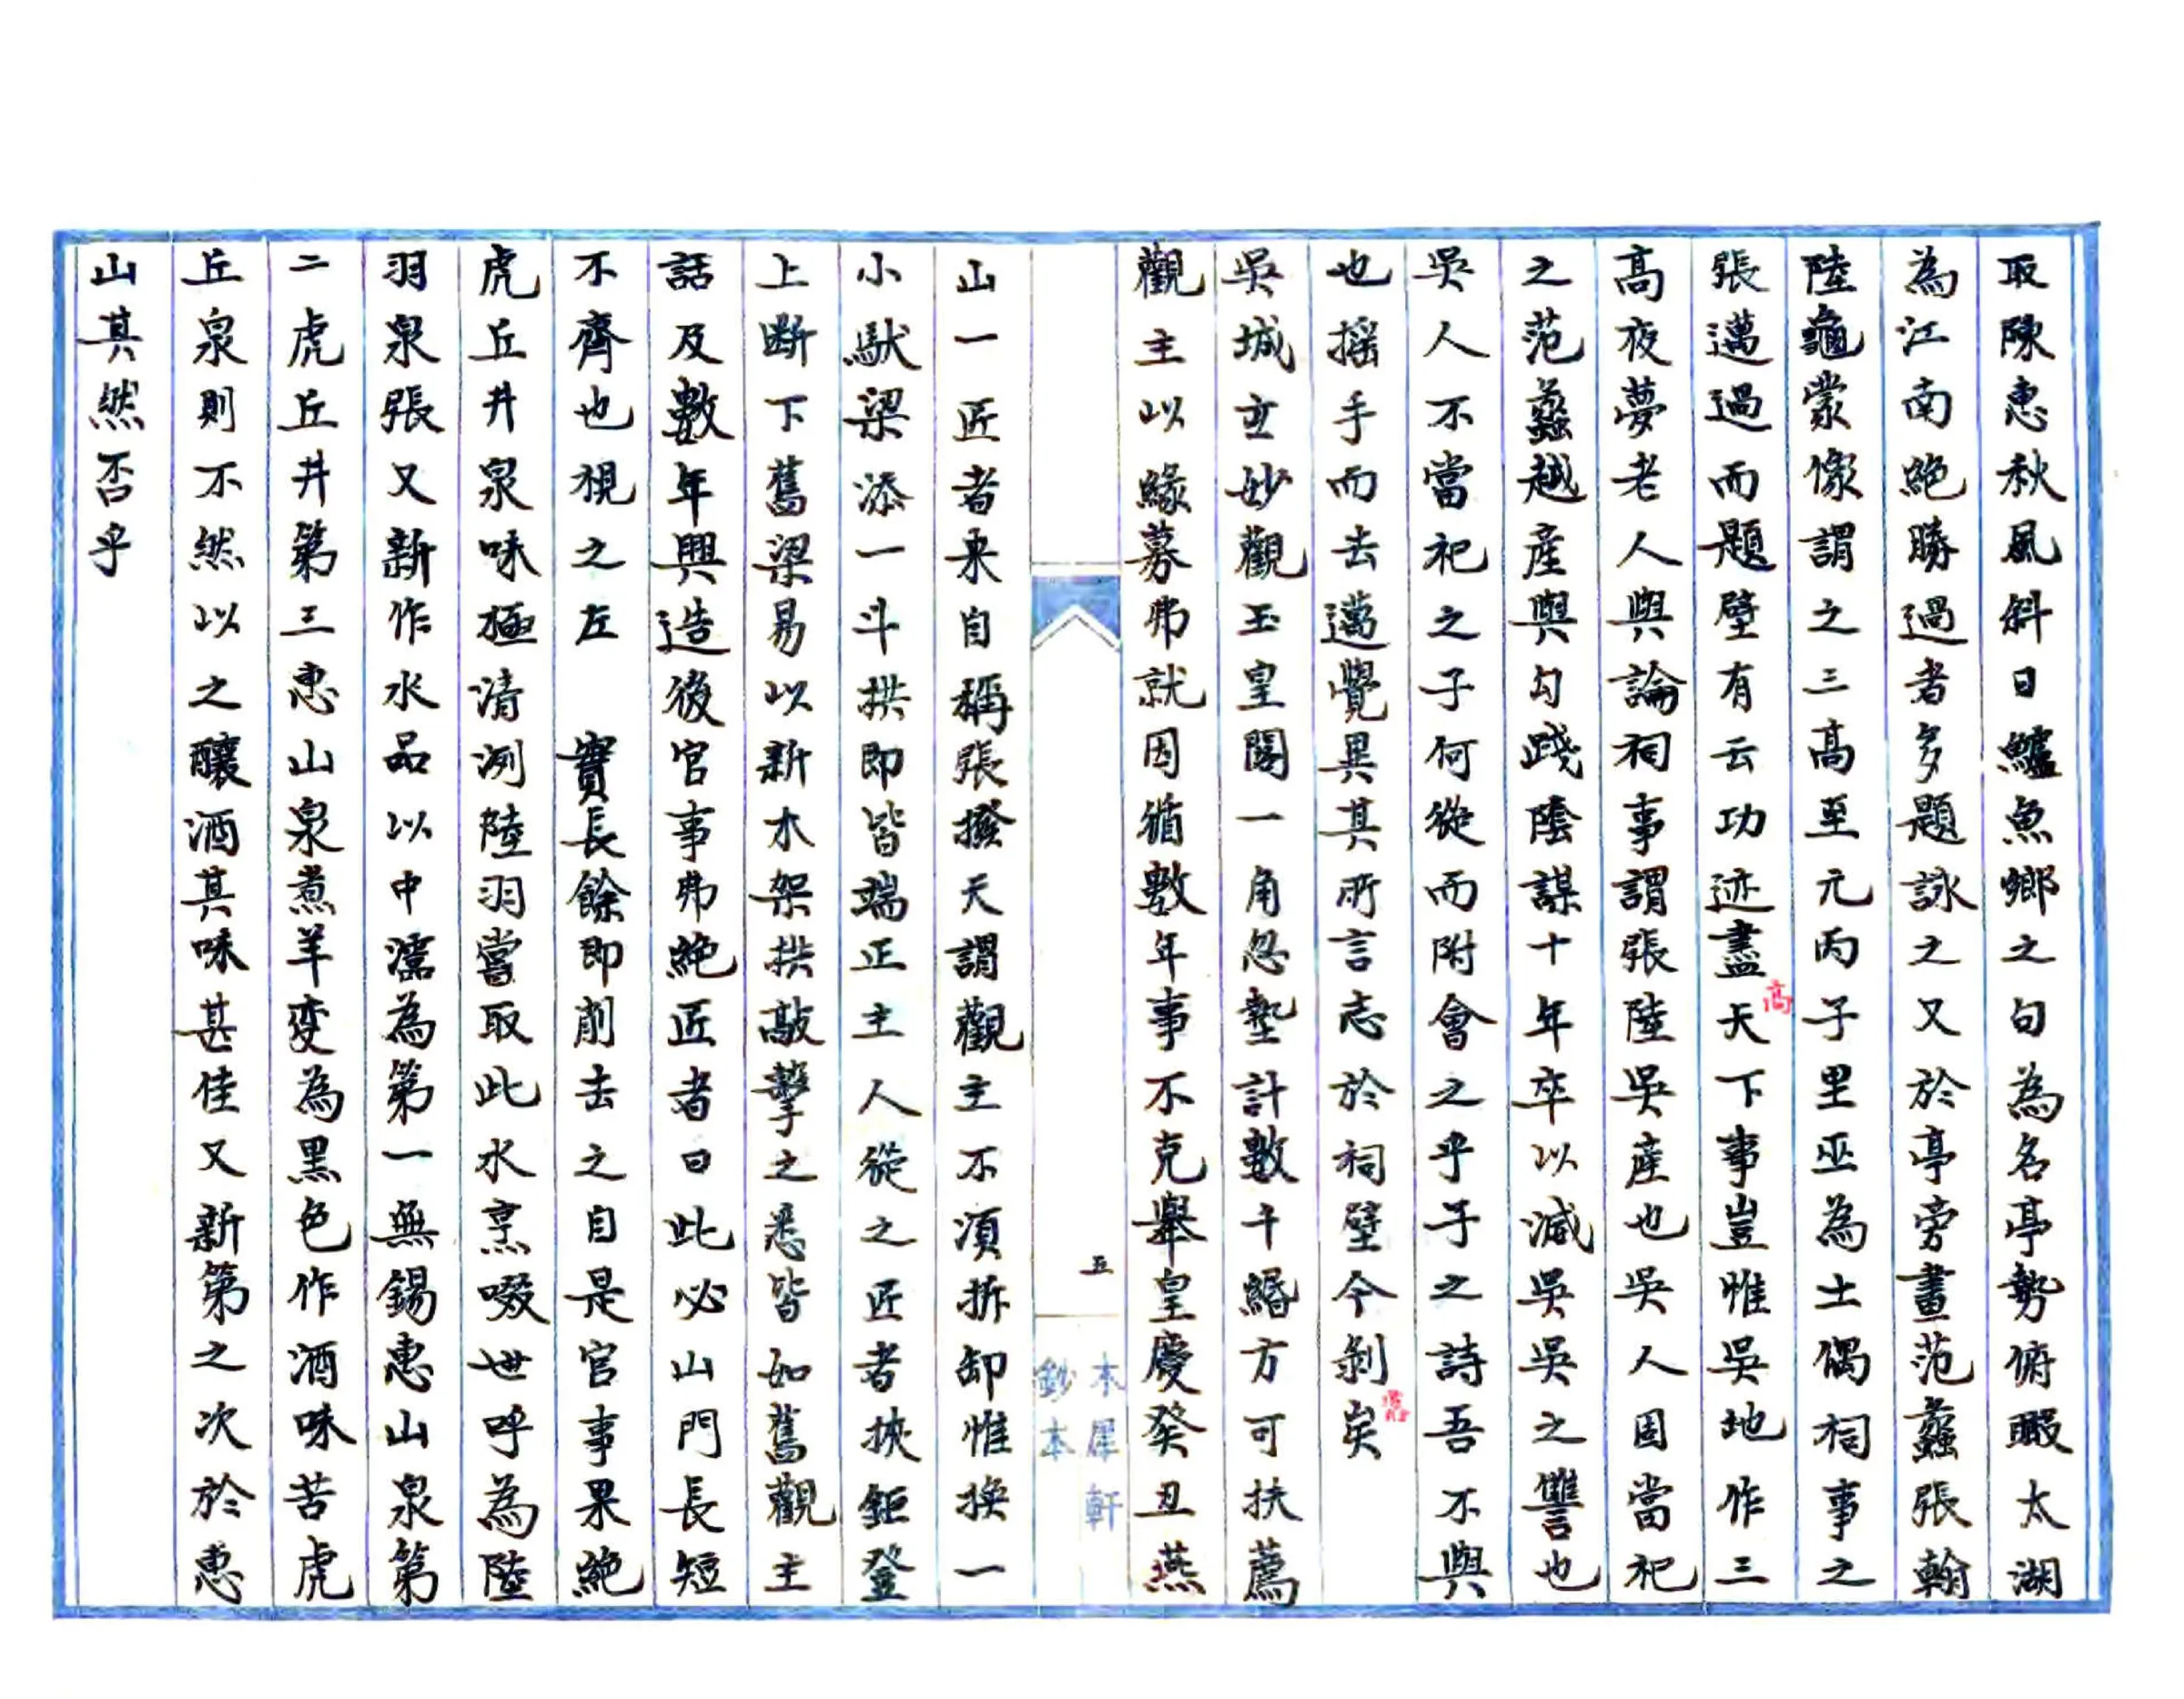 取陳惠秋風斜日鱸魚鄉之句為名亭勢俯瞰太湖
為江南絕勝過者多題詠之又於亭旁畫范蠡張翰
陸龜蒙像謂之三高至元丙子里巫為土偶祠事之
張邁過而題壁有云功迹盡天下事豈惟吳地作三
高
高夜夢老人與論祠事謂張陸吳產也吳人固當祀
之范蠡越產與勾踐陰謀十年卒以滅吳吳之讐也
吳人不當祀之子何從而附會之乎子之詩吾不與
也摇手而去邁覺異其所言志於祠壁今剝矣
吳城玄妙觀玉皇閣一角忽墊計數千緡方可扶薦
觀主以緣募弗就因循數年事不克舉皇慶癸丑燕
五
木犀軒
鈔本
山一匠者来自稱張撥天謂觀主不湏拆卸惟換一
小馱梁添一斗拱即皆端正主人從之匠者挾鉅登
上斷下舊梁易以新木架拱敲擊之悉皆如舊觀主
話及數年興造後官事弗絕匠者曰此必山門長短
不齊也視之左 實長餘即削去之自是官事果絕
虎丘井泉味極清洌陸羽嘗取此水烹啜世呼為陸
羽泉張又新作水品以中濡為第一無錫惠山泉第
二虎丘井第三惠山泉煮羊变為黑色作酒味苦虎
丘泉則不然以之釀酒其味甚佳又新第之次於惠
山其然否乎